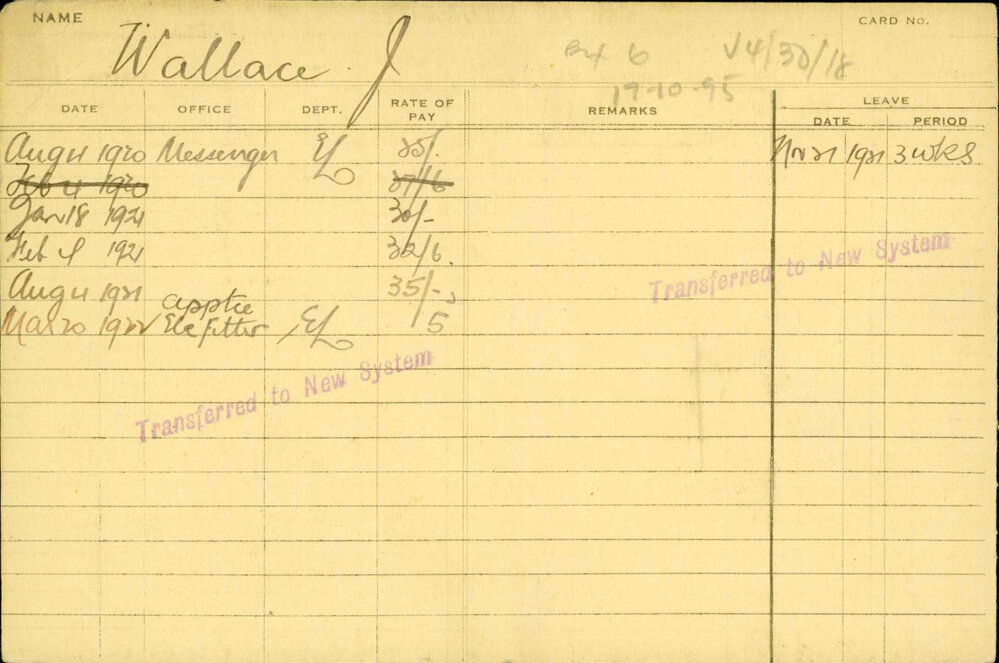 NAME
CARD No.
Wallace J
Box 6 V4/30/18
17-10-95
DATE OFFICE DEPT. RATE OF PAY REMARKS LEAVE
DATE PERIOD
Aug 4 1920 Messenger EL 25/- Nov 21 1921 3 wks
Feb 4 1920 27/6
Jan 18 1921 30/-
Feb 1921 32/6
Transferred to New System
Aug 4 1921 35/-
Mar 20 1922 apptce Ele fitter EL 5
Transferred to New System